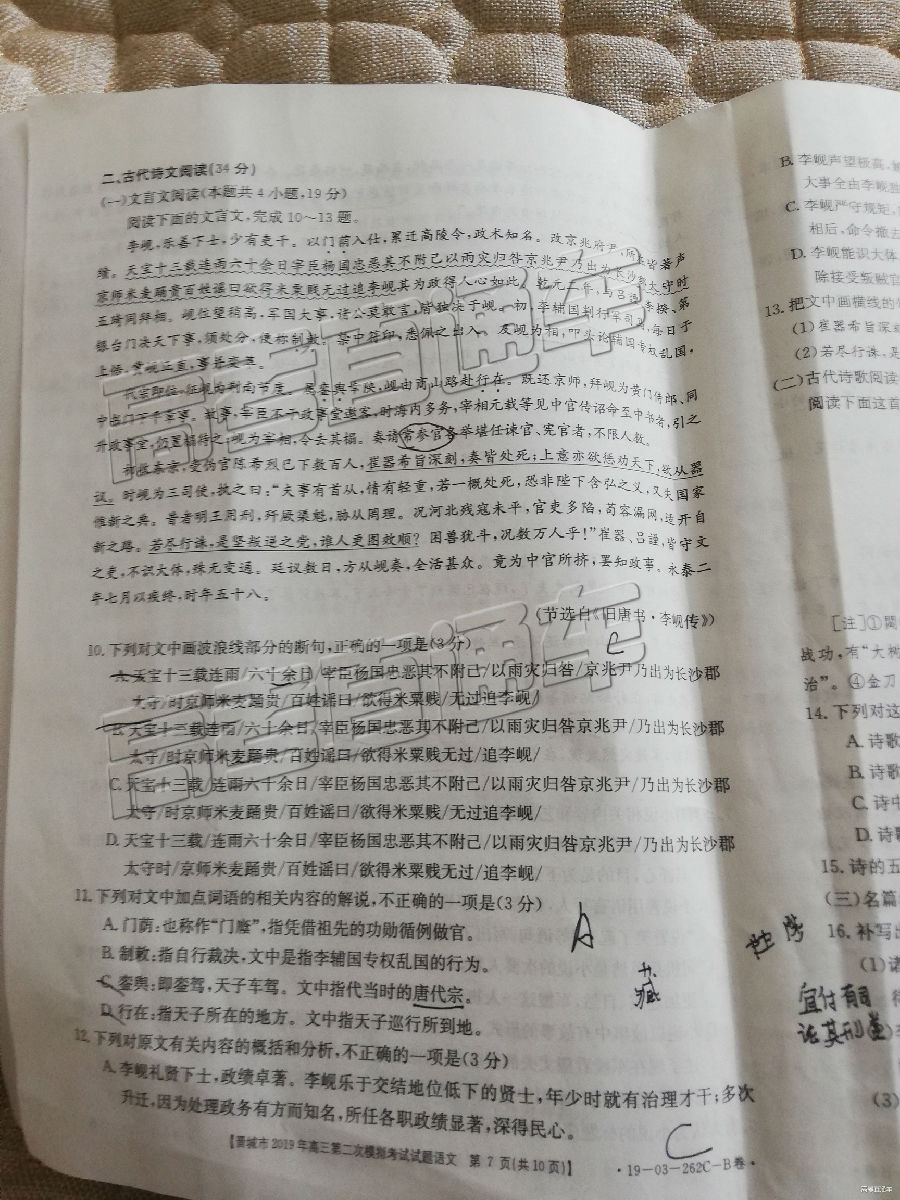 二、古代诗文阅读(34分)
(一)文言文阅读(本题共4小题,19分)
阅读下面的文言文,完成10～13题。
李岘,乐善下士,少有吏干。以门荫入仕,累迁高陵令,政术知名。改京兆府尹,所在皆著声
绩。天宝十三载连雨六十余日宰臣杨国忠恶其不附己以雨灾归咎京兆尹乃出为长沙郡太守时
京师米麦踊贵百姓谣曰欲得米粟贱无过追李岘其为政得人心如此。乾元二年,与吕諲、李揆、第
五琦同拜相。岘位望稍高,军国大事,诸公莫敢言,皆独决于岘。初,李辅国判行军司马,每日于
银台门决天下事,须处分,便称制敕。禁中符印,悉佩之出入。及岘为相,叩头论辅国专权乱国,
上悟,赏岘正直,事并变革。
代宗即位,征岘为荆南节度。属銮舆幸陕,岘由商山路赴行在。既还京师,拜岘为黄门侍郎、同
中书门下平章事。故事,宰臣不于政事堂邀客,时海内多务,宰相元载等见中官传诏命至中书者,引之
升政事堂,仍置榻待之;岘为宰相,令去其榻。奏请常参官各举堪任谏官、宪官者,不限人数。
初收东京,受伪官陈希烈已下数百人,崔器希旨深刻,奏皆处死;上意亦欲惩劝天下,欲从器
议。时岘为三司使,执之曰:“夫事有首从,情有轻重,若一概处死,恐非陛下含弘之义,又失国家
惟新之典。昔者明王用刑,歼厥渠魁,胁从罔理。况河北残寇未平,官吏多陷,苟容漏网,适开自
新之路。若尽行诛,是坚叛逆之党,谁人更图效顺?困兽犹斗,况数万人乎!”崔器、吕諲,皆守文
之吏,不识大体,殊无变通。廷议数日,方从岘奏,全活甚众。竟为中官所挤,罢知政事。永泰二
年七月以疾终,时年五十八。
(节选自《旧唐书·李岘传》)
10.下列对文中画波浪线部分的断句,正确的一项是(3分)
A.天宝十三载连雨/六十余日/宰臣杨国忠恶其不附己/以雨灾归咎/京兆尹乃出为长沙郡
太守/时京师米麦踊贵/百姓谣曰/欲得米粟贱/无过追李岘/
B.天宝十三载连雨/六十余日/宰臣杨国忠恶其不附己/以雨灾归咎京兆尹/乃出为长沙郡
太守/时京师米麦踊贵/百姓谣曰/欲得米粟贱无过/追李岘/
C.天宝十三载/连雨六十余日/宰臣杨国忠恶其不附己/以雨灾归咎京兆尹/乃出为长沙郡
太守/时京师米麦踊贵/百姓谣曰/欲得米粟贱/无过追李岘/
D.天宝十三载/连雨六十余日/宰臣杨国忠恶其不附己/以雨灾归咎京兆尹/乃出为长沙郡
太守时/京师米麦踊贵/百姓谣曰/欲得米粟贱/无过追李岘/
11.下列对文中加点词语的相关内容的解说,不正确的一项是(3分)
A
A.门荫:也称作“门廕”,指凭借祖先的功勋循例做官。
B.制敕:指自行裁决,文中是指李辅国专权乱国的行为。
C.銮舆:即銮驾,天子车驾。文中指代当时的唐代宗。
D.行在:指天子所在的地方。文中指天子巡行所到地。
12.下列对原文有关内容的概括和分析,不正确的一项是(3分)
A.李岘礼贤下士,政绩卓著。李岘乐于交结地位低下的贤士,年少时就有治理才干;多次
升迁,因为处理政务有方而知名,所任各职政绩显著,深得民心。
C
【晋城市2019年高三第二次模拟考试试题语文 第7页(共10页)】 ·19-03-262C-B卷·
B.李岘声望极高,
大事全由李岘独
C.李岘严守规矩,
相后,命令撤去
D.李岘能识大体
除接受叛贼官
13.把文中画横线的
(1)崔器希旨深刻
(2)若尽行诛,是
(二)古代诗歌阅读
阅读下面这首
[注]①
战功,有“大树
治”。④金刀
14.下列对这
A.诗歌
B.诗歌
C.诗中
D.诗歌
15.诗的五
(三)名篇
16.补写出
(1)诸
宜付有司
论其刑
(3)
高考直通车